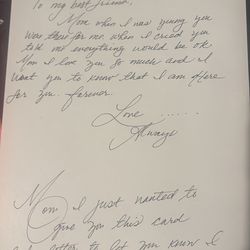 To my best friend,
Mom when I was young you
were there for me, when I cried you
told me everything would be ok
Mom I love you so much and I
want you to know that I am Here
for you. forever.
Love ......
Always
Mom I just wanted to
give you this card
letter to let you know I